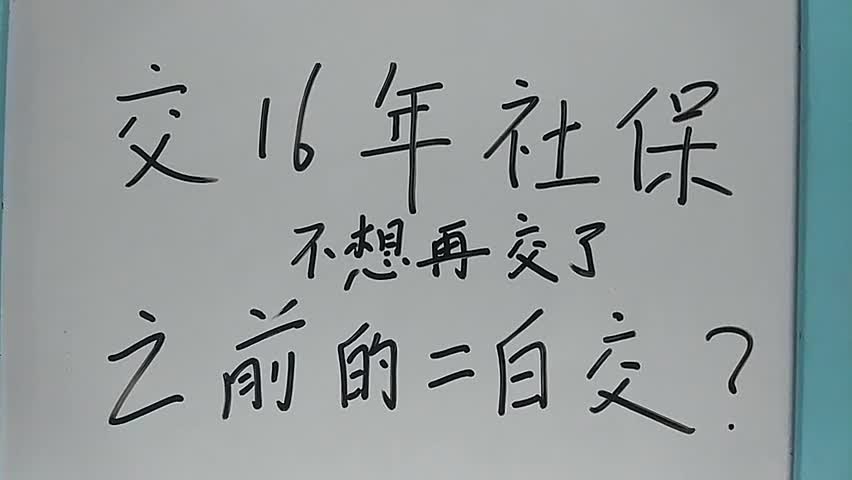 交16年社保
不想再交了
之前的=白交?